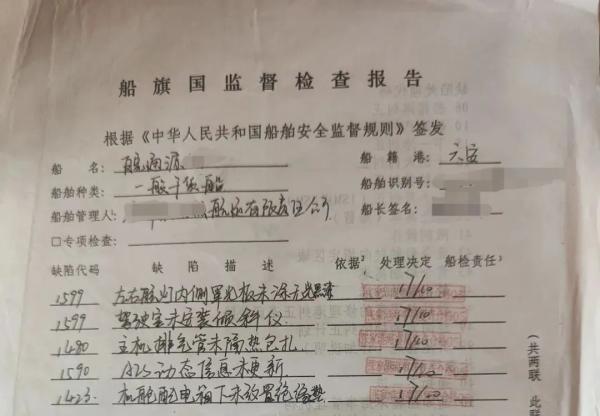 船旗国监督检查报告
根据《中华人民共和国船舶安全监督规则》签发
船 名：皖通源 船籍港：六安
船舶种类：一般干货船 船舶识别号：
船舶管理人：船舶有限责任公司 船长签名：
□专项检查：
缺陷代码 缺陷描述 依据² 处理决定 船检责任³
1599 左右舷灯内侧罩光板未涂无光黑漆 17/10
1599 驾驶室未安装倾斜仪 17/10
1480 主机排气管未隔热包扎 17/10
1590 AIS动态信息未更新 17/10
1423 机舱配电箱下未放置绝缘垫 17/10
（共两联 此联